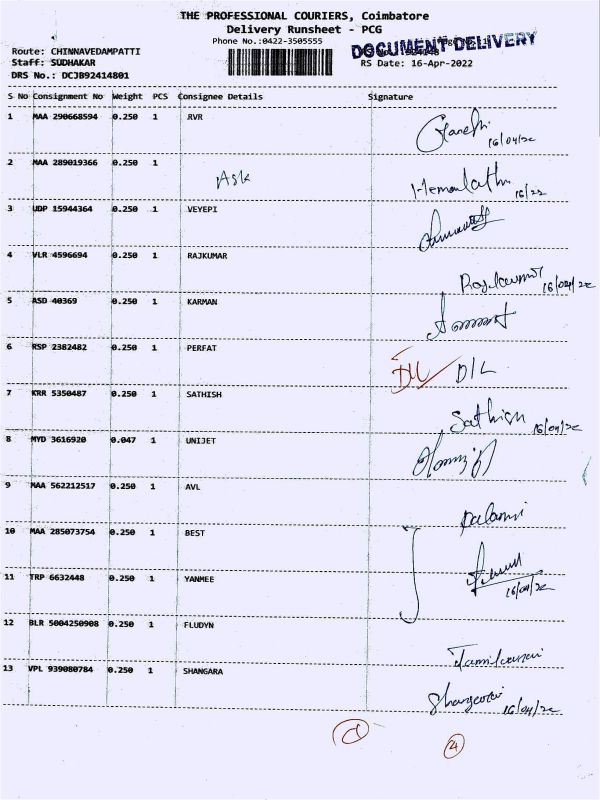 THE PROFESSIONAL COURIERS, Coimbatore
Delivery Runsheet - PCG
Phone No.:0422-3505555
DOCUMENT DELIVERY
Route: CHINNAVEDAMPATTI
Staff: SUDHAKAR
RS Date: 16-Apr-2022
DRS No.: DCJB92414801
S No Consignment No Weight PCS Consignee Details Signature
1 MAA 290668594 0.250 1 RVR
16/04/22
2 MAA 289019366 0.250 1 Ask Hemalatha
16/22
3 UDP 15944364 0.250 1 VEYEPI
4 VLR 4596694 0.250 1 RAJKUMAR
Rajkumar 16/04/22
5 ASD 40369 0.250 1 KARMAN
6 RSP 2382482 0.250 1 PERFAT
D/L D/L
7 KRR 5350487 0.250 1 SATHISH
Sathish 16/04/22
8 MYD 3616920 0.047 1 UNIJET
9 MAA 562212517 0.250 1 AVL
Palani
10 MAA 285073754 0.250 1 BEST
11 TRP 6632448 0.250 1 YANMEE
16/04/22
12 BLR 5004250908 0.250 1 FLUDYN
13 VPL 939080784 0.250 1 SHANGARA
16/04/22
4